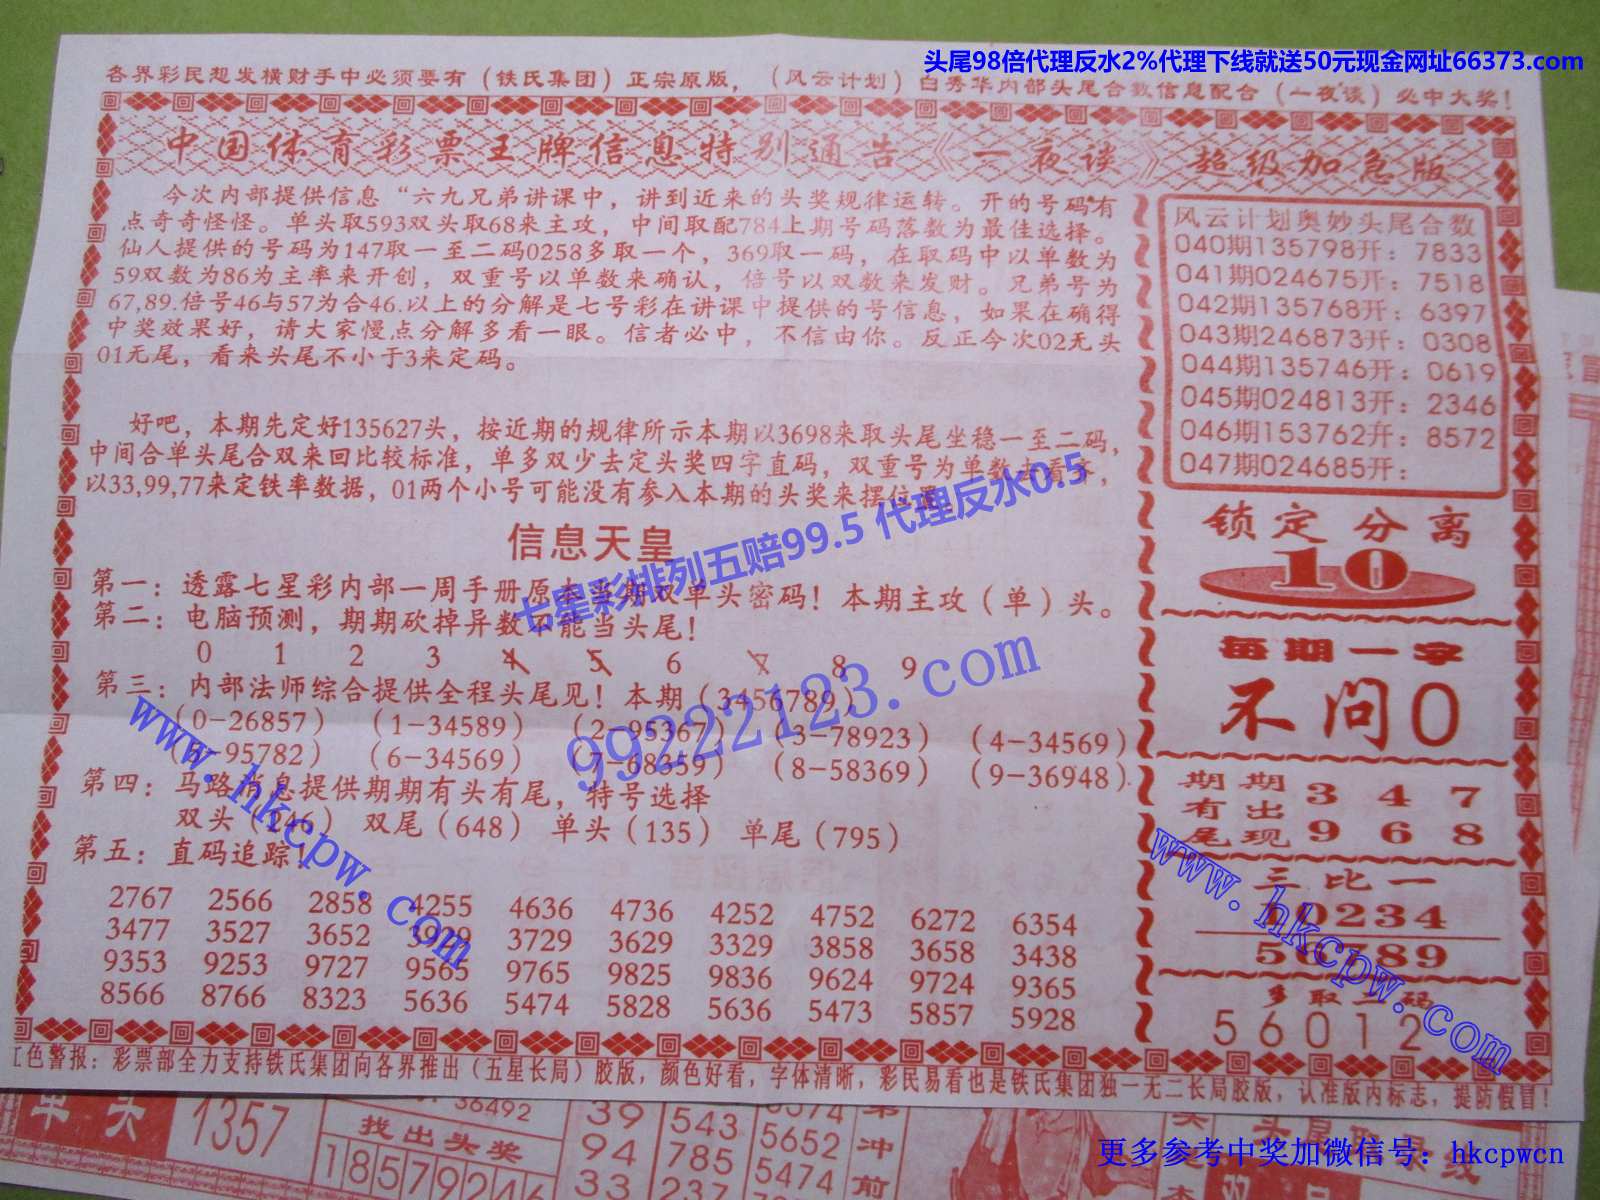 头尾98倍代理反水2%代理下线就送50元现金网址66373.com
各界彩民想发横财手中必须要有（铁氏集团）正宗原版，（风云计划）白秀华内部头尾合数信息配合（一夜谈）必中大奖！
中国体育彩票王牌信息特别通告《一夜谈》超级加急版
今次内部提供信息“六九兄弟讲课中，讲到近来的头奖规律运转。开的号码有
点奇奇怪怪。单头取593双头取68来主攻，中间取配784上期号码落数为最佳选择。
仙人提供的号码为147取一至二码0258多取一个，369取一码，在取码中以单数为
59双数为86为主率来开创，双重号以单数来确认，倍号以双数来发财。兄弟号为
67,89.倍号46与57为合46.以上的分解是七号彩在讲课中提供的号信息，如果在确得
中奖效果好，请大家慢点分解多看一眼。信者必中，不信由你。反正今次02无头
01无尾，看来头尾不小于3来定码。
好吧，本期先定好135627头，按近期的规律所示本期以3698来取头尾坐稳一至二码，
中间合单头尾合双来回比较标准，单多双少去定头奖四字直码，双重号为单数去看齐，
以33,99,77来定铁率数据，01两个小号可能没有参入本期的头奖来摆位置
信息天皇
第一：透露七星彩内部一周手册原本当期双单头密码！本期主攻（单）头。
第二：电脑预测，期期砍掉异数不能当头尾！
0 1 2 3 4 5 6 7 8 9
第三：内部法师综合提供全程头尾见！本期（3456789）
（0-26857）（1-34589）（2-95367）（3-78923）（4-34569）
（5-95782）（6-34569）（7-68359）（8-58369）（9-36948）
第四：马路消息提供期期有头有尾，特号选择
双头（246） 双尾（648） 单头（135） 单尾（795）
第五：直码追踪！
2767 2566 2858 4255 4636 4736 4252 4752 6272 6354
3477 3527 3652 3929 3729 3629 3329 3858 3658 3438
9353 9253 9727 9565 9765 9825 9836 9624 9724 9365
8566 8766 8323 5636 5474 5828 5636 5473 5857 5928
风云计划奥妙头尾合数
040期135798开：7833
041期024675开：7518
042期135768开：6397
043期246873开：0308
044期135746开：0619
045期024813开：2346
046期153762开：8572
047期024685开：
锁定分离
10
每期一字
不问0
期期 3 4 7
有出
尾现 9 6 8
三比一
10234
56789
多取二码
56012
七星彩排列五赔99.5 代理反水0.5
99222123.com
www.hkcpw.com
www.hkcpw.com
红色警报：彩票部全力支持铁氏集团向各界推出（五星长局）胶版，颜色好看，字体清晰，彩民易看也是铁氏集团独一无二长局胶版，认准版内标志，提防假冒！
单头 1357
36492
找出头奖
18579246
39 543
94 785 5652
33 237 5474
冲
前
更多参考中奖加微信号：hkcpwcn